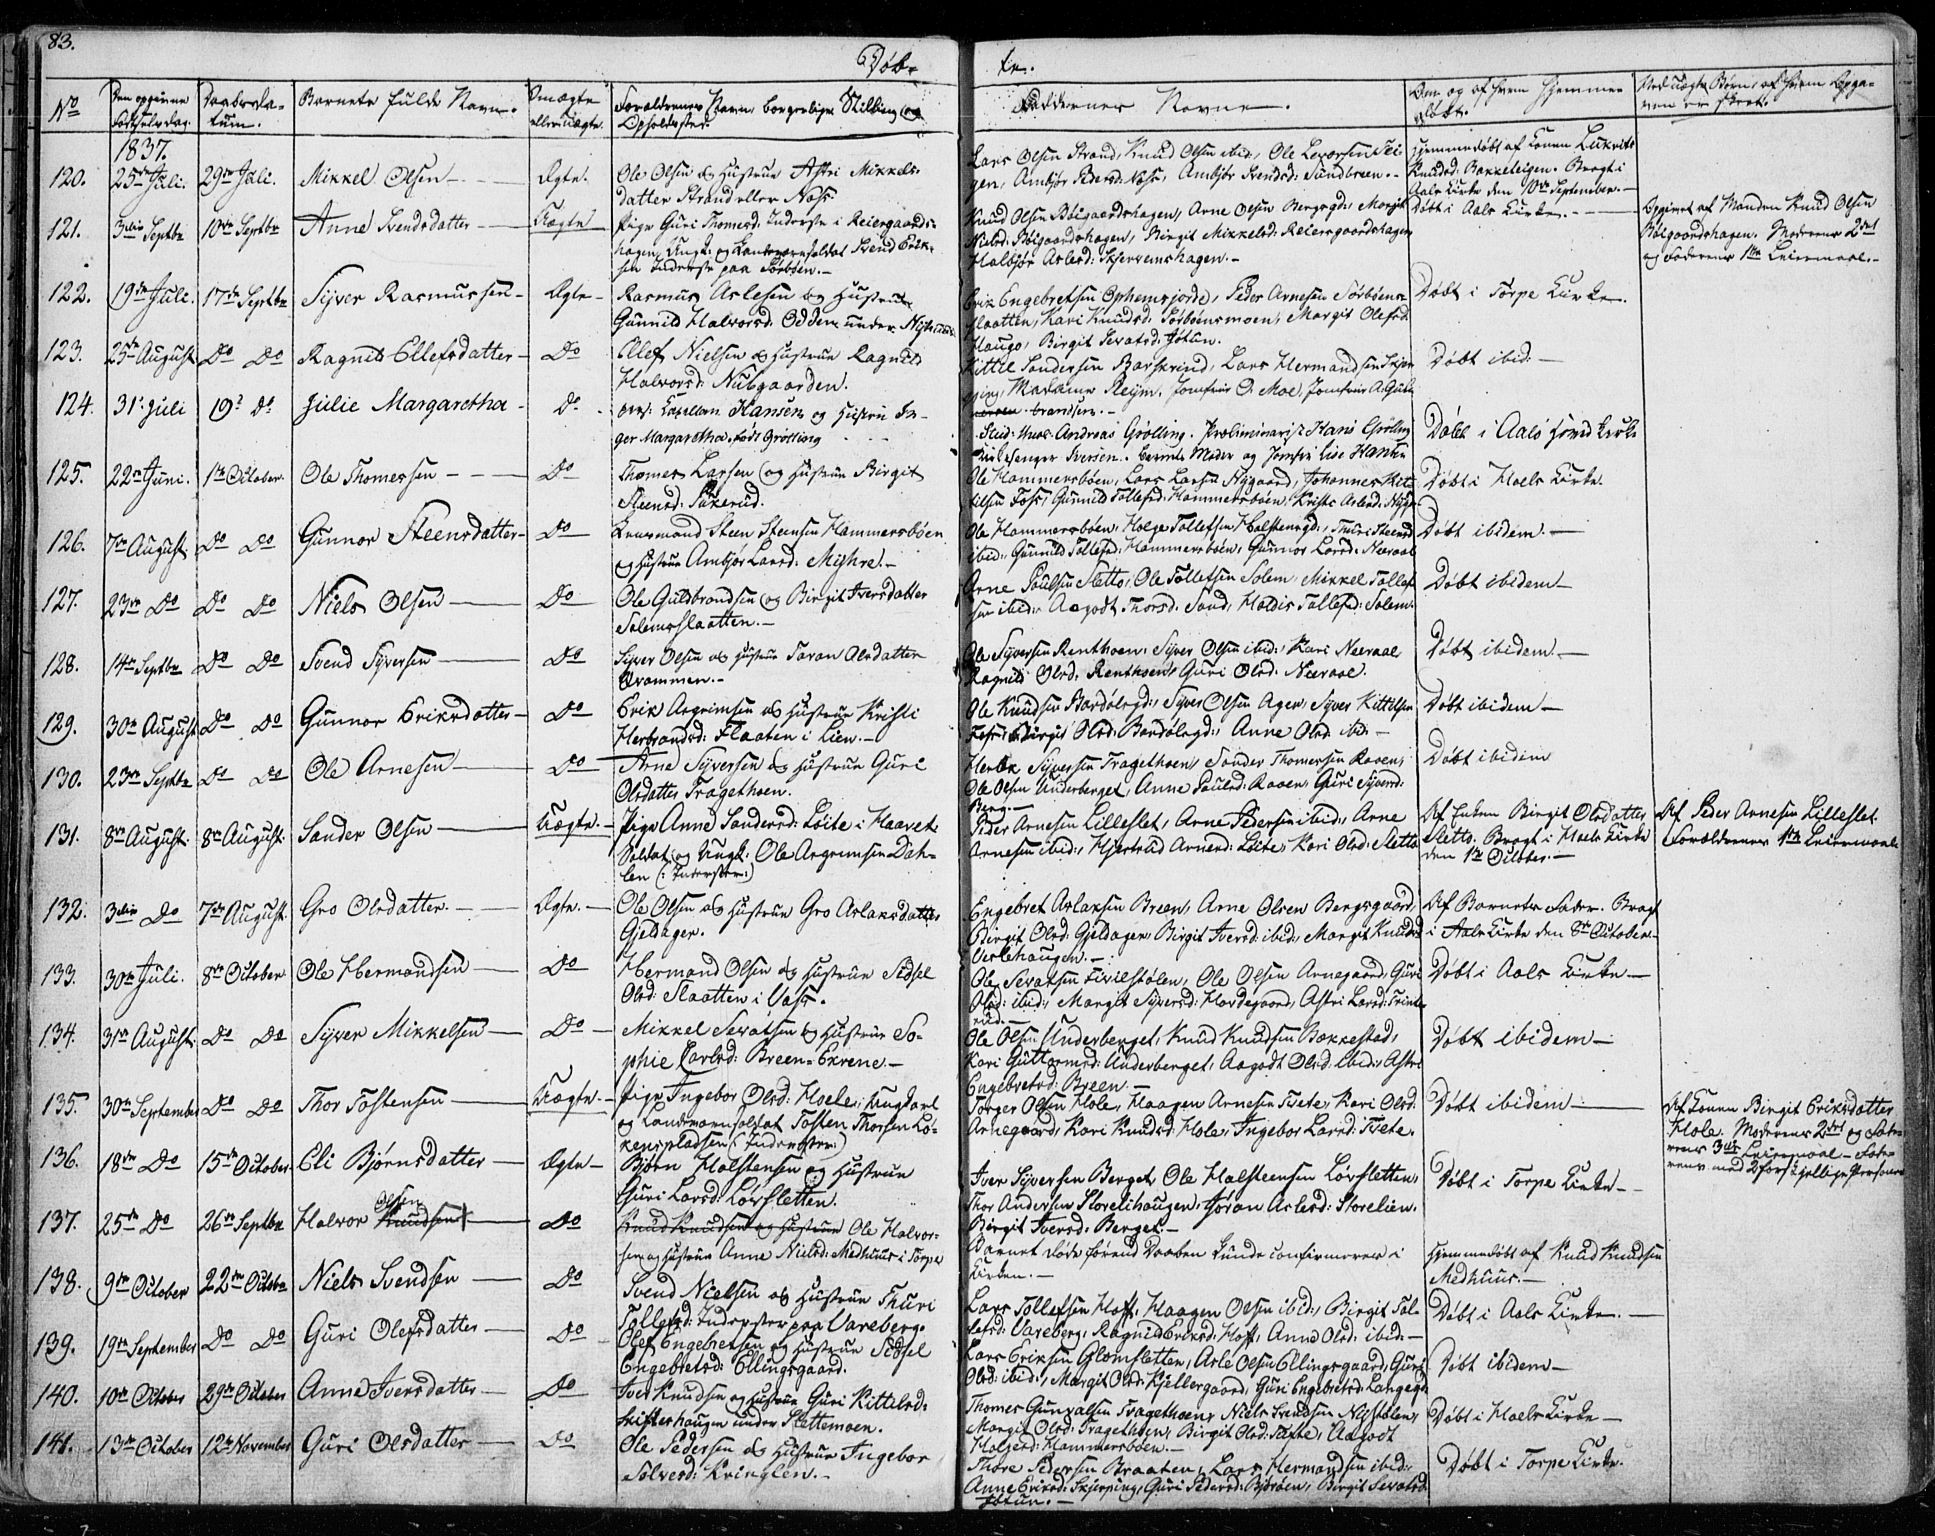 83.
Døb-
te.
No
Den opgivne
Fødselsdag.
Daabsda-
tum.
Barnets fulde Navn.
Om ægte
eller uægte.
Forældrenes Navn, borgerlige Stilling og
Opholdssted.
Faddernes Navne.
Om og af hvem hjemme-
døbt.
Ved uægte Børn, af hvem Opga-
ven er skeet.
1837.
120.
25de Juli.
29de Juli.
Mikkel Olsen
Ægte.
Ole Olsen og Hustrue Astri Mikkels-
datter Strand eller Noss
Lars Olsen Strand, Knud Olsen ibid:, Ole Levorsen Tei-
gen, Ambjør Pedersd: Noss, Ambjør Svendsd: Sundbreen.
Hjemmedøbt af Konen
Knudsd: Bakketeigen. Bragt i
Aals Kirke den 10de September.
121.
3die Septbr
10de Septbr
Anne Svendsdatter
Uægte
Pige Guri Thomesd: Inderste i Reiersgaards-
hagen, Ungk: og Landeværnsoldat Svend Erik-
sen Inderste paa Sørbøen.
Knud Olsen Bøigaardshagen, Arne Olsen Bergsgd:, Margit
Nielsd: Bøigaardshagen, Birgit Mikkelsd: Reiersgaardshagen
Halbjør Aslesd: Skjervenshagen.
Døbt i Aals Kirke.
Opgivet af Manden Knud Olsen
Bøigaardshagen. Moderens 2det
og Faderens 1ste Leiermaal.
122.
19de Juli.
17de Septbr
Syver Rasmussen
Ægte
Rasmus Aslesen og Hustrue
Gunnild Halvorsd: Odden under
Erik Engebretsen Ophemsjorde, Peder Arnesen Sørbøens-
slaatten, Kari Knudsd: Sørbøensmoen, Margit Olefsd:
Haugo, Birgit Sevatsd: Jøtun.
Døbt i Torpe Kirke.
123.
25de August
Do Do
Ragnild Ellefsdatter
Do
Ellef Nielsen og Hustrue Ragnild
Halvorsd: Nubgaarden.
Kittil Sandersen Barskrind, Lars Hermandsen Skjer-
ping, Madame Kleijm, Jomfrue O. Moe, Jomfrue A. Gul-
brandsen.
Døbt ibid:
124.
31. Juli
19de Do
Julie Margaretha
Do
pers: Capellan Hansen og Hustrue In-
ger Margaretha, født Grølling
Stud: Andreas Grølling. Præliminarist Hans Grølling
Kirkesanger Iversen. Barnets Moder og Jomfru Lise Hansen
Døbt i Aals Hovedkirke
125.
22de Juni.
1ste October
Ole Thomessen
Do
Thomes Larsen og Hustrue Birgit
Steensd: Sukerud.
Ole Hammersbøen, Lars Larsen Nygaard, Johannes Kit-
tilsen Foss, Gunnild Tollefsd: Hammersbøen, Kristi Aslesd:
Døbt i Hoels Kirke.
126.
7de August
Do Do
Gunnor Steensdatter
Do
Enersmand Steen Steensen Hammersbøen
og Hustrue Ambjør Larsd: Myhre.
Ole Hammersbøen, Holge Tollefsen Halstensgd:, Thuri Steensd
ibid:, Gunnild Tollefsd: Hammersbøen, Gunnor Larsd: Neeraal
Døbt ibidem.
127.
23de Do
Do Do
Niels Olsen
Do
Ole Guldbrandsen og Birgit Iversdatter
Solemsslaatten.
Arne Poulsen Sletto, Ole Tollefsen Solem, Mikkel Tollef-
sen ibid:, Aagodt Thorsd: Sand, Haldis Tollefsd: Solem.
Døbt ibidem
128.
14de Septbr
Do Do
Svend Syversen
Do
Syver Olsen og Hustrue Søran Olsdatter
Ole Syversen Renthoen, Syver Olsen ibid:, Kari Neeraal
Ragnild Olsd: Renthoen, Guri Olsd: Neeraal.
Døbt ibidem
129.
30de August
Do Do
Gunnor Eriksdatter
Do
Erik Asgrimsen og Hustrue Kristi
Herbrandsd: Flaaten i Lien.
Ole Knudsen Bardølsgd:, Syver Olsen Ager, Syver Kittelsen
Foss, Birgit Olsd: Bardølsgd:, Anne Olsd: ibid:
Døbt ibidem
130.
23de Septbr
Do Do
Ole Arnesen
Do
Arne Syversen og Hustrue Guri
Olsdatter Tragethoen.
Herbr. Syversen Tragethoen, Sander Thomesen Raaen,
Ole Olsen Underberget, Anne Poulsd: Raaen, Guri Syversd:
Berg.
Døbt ibidem
131.
8de August.
8de August.
Sander Olsen
Uægte.
Pige Anne Sandersd: Løite i Haavet.
Soldat og Ungk: Ole Asgrimsen Dah-
len (: Inderster:)
Peder Arnesen Lilleslet, Arne Pedersen ibid:, Arne
Arnesen ibid:, Hjertrud Arnesd: Løite, Kari Olsd: Sletto
Af Enken Birgit Olsdatter
Sletto. Bragt i Hoels Kirke
den 1ste October.
Af Peder Arnesen Lilleslet.
Forældrenes 1ste Leiermaal
132.
3die Do
7de August.
Gro Olsdatter.
Ægte.
Ole Olsen og Hustrue Gro Aslaksdatter
Gjeldager.
Engebret Aslaksen Breen, Arne Olsen Bergsgaard,
Birgit Olsd: Gjeldager, Birgit Iversd: ibid:, Margit Knudsd
Veslehaugen.
Af Barnets Fader. Bragt
i Aals Kirke den 8de October.
133.
30de Juli.
8de October
Ole Hermandsen
Do
Hermand Olsen og Hustrue Sidsel
Olsd: Slaatten i Vats.
Ole Sevatsen Tivilstølen, Ole Olsen Arnegaard, Guri
Olsd: ibid:, Margit Syversd: Hordegaard, Astri Larsd: Trinte-
rud.
Døbt i Aals Kirke
134.
31te August.
Do Do
Syver Mikkelsen
Do
Mikkel Sevatsen og Hustrue So-
phie Carlsd: Breen-Ekrene.
Ole Olsen Underberget, Knud Knudsen Bakkestad,
Kari Guttormsd: Underberget, Aagodt Olsd: ibid:, Astri
Engebretsd: Breen.
Døbt ibidem
135.
30de September
Do Do
Thor Tostensen
Uægte.
Pige Ingebor Olsd: Hoele, Ungkarl
og Landeværnsoldat Tosten Thorsen Lø-
kenspladsen (: Inderster:)
Torger Olsen Hole, Haagen Arnesen Tvete, Kari Olsd:
Arnegaard, Kari Knudsd: Hole, Ingebor Larsd: Tvete.
Døbt ibidem
Af Konen Birgit Eriksdatter
Hole. Moderens 2det og Fade-
rens 3die Leiermaal – Fade-
rens med 2 forskjellige Personer
136.
18de Do
15de October
Eli Bjørnsdatter
Ægte
Bjørn Halstensen og Hustrue
Guri Larsd: Lørsletten.
Iver Syversen Berget, Ole Halsteensen Lørsletten,
Thor Andersen Storelihaugen, Jøran Aslesd: Storelien.
Birgit Iversd: Berget.
Døbt i Torpe Kirke
137.
25de Do
26de Septbr
Halvor Knudsen
Olsen
Do
Knud Knudsen og Hustrue Ole Halvor-
sen og Hustrue Anne Nielsd: Medhuus i Torpe
Barnet døde førend Daaben kunde confirmeres i
Kirken.
Hjemmedøbt af Knud Knudsen
Medhuus.
138.
9de October
22de Octobr
Niels Svendsen
Do
Svend Nielsen og Hustrue Thuri
Tollefsd: Inderster paa Vareberg.
Lars Tollefsen Hoff, Haagen Olsen ibid:, Birgit Tol-
lefsd: Vareberg, Ragnild Eriksd: Hoff, Anne Olsd: ibid:
Døbt i Aals Kirke.
139.
19de September
Do Do
Guri Olefsdatter
Do
Olef Engebretsen og Hustrue Sidsel
Engebretsd: Ellingsgaard.
Lars Eriksen Glomsletten, Asle Olsen Ellingsgaard, Guri
Olsd: ibid:, Margit Olsd: Kjellergaard, Guri Engebretsd: Langegd.
Døbt ibidem
140.
10de October
29de October
Anne Iversdatter
Do
Iver Knudsen og Hustrue Guri Kittilsd:
Skiftershaugen under Slettemoen.
Thomes Gunvalsen Tragethoen, Niels Svendsen Nystølen,
Margit Olsd: Tragethoen, Birgit Olsd: Tufte, Aagodt
Holgesd: Hammersbøen.
Døbt i Hoels Kirke
141.
13de October
12te November
Guri Olsdatter
Do
Ole Pedersen og Hustrue Ingebor
Solvesd: Kringlen.
Thore Pedersen Braaten, Lars Hermandsen ibid:,
Anne Eriksd: Skjerping, Guri Pedersd: Bjøröen, Birgit Sevatsd:
Jøtun.
Døbt i Torpe Kirke.